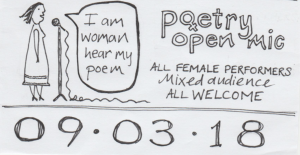 I am
woman
hear my
poem
poetry
open mic
ALL FEMALE PERFORMERS
Mixed audience
ALL WELCOME
09·03·18